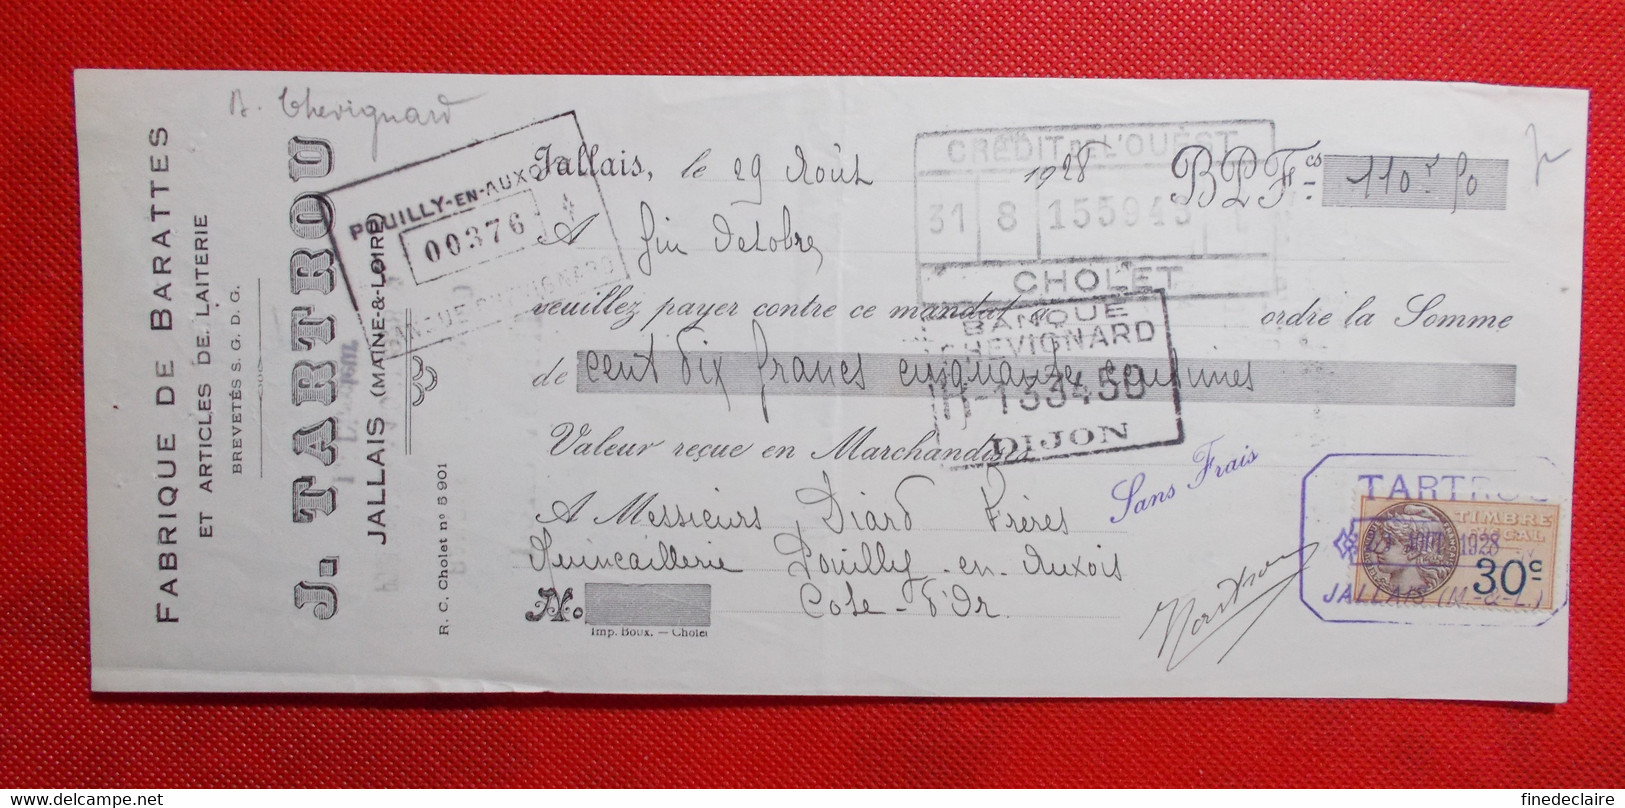 A. Chevignard
FABRIQUE DE BARATTES
ET ARTICLES DE LAITERIE
BREVETÉS S. G. D. G.
J. TARTROU
JALLAIS (MAINE-&-LOIRE)
R. C. Cholet nº 5 901
POUILLY-EN-AUXOIS
00376
Jallais, le 29 Août 1928 BPFcs 110 f 50
CREDIT DE L'OUEST
31 8 155943
CHOLET
A fin Octobre
veuillez payer contre ce mandat à ordre la Somme
de cent dix francs cinquante centimes
BANQUE
CHEVIGNARD
H-133450
DIJON
Valeur reçue en Marchandises
Sans Frais
A Messieurs Diard Frères
Quincaillerie Pouilly-en-Auxois
Cote-d'Or
No.
Imp. Boux. — Cholet
TARTROU
AOUT 1928
JALLAIS (M.-&-L.)
TIMBRE
FISCAL
30 c
finedeclaire